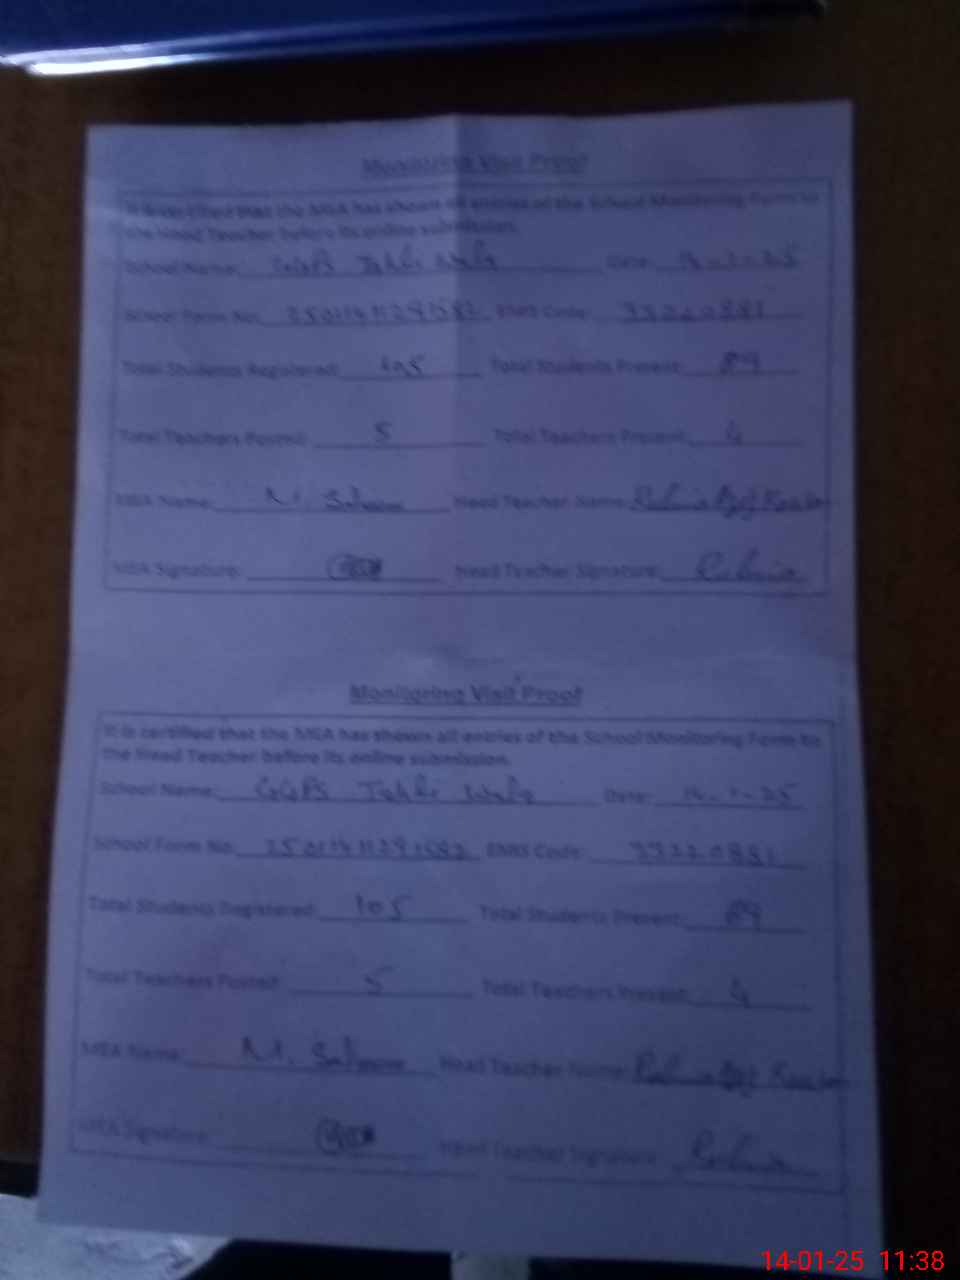 Monitoring Visit Proof
It is certified that the MEA has shown all entries of the School Monitoring Form to
the Head Teacher before its online submission.
School Name: GGPS Tahli Wala Date: 14-1-25
School Form No: EMIS Code: 33220881
Total Students Registered: 105 Total Students Present: 89
Total Teachers Posted: 5 Total Teachers Present: 4
MEA Name: M. Saleem Head Teacher Name: Rubina
MEA Signature: Head Teacher Signature: Rubina
Monitoring Visit Proof
It is certified that the MEA has shown all entries of the School Monitoring Form to
the Head Teacher before its online submission.
School Name: GGPS Tahli Wala Date: 14-1-25
School Form No: EMIS Code: 33220881
Total Students Registered: 105 Total Students Present: 89
Total Teachers Posted: 5 Total Teachers Present: 4
MEA Name: M. Saleem Head Teacher Name: Rubina
MEA Signature: Head Teacher Signature: Rubina
14-01-25 11:38